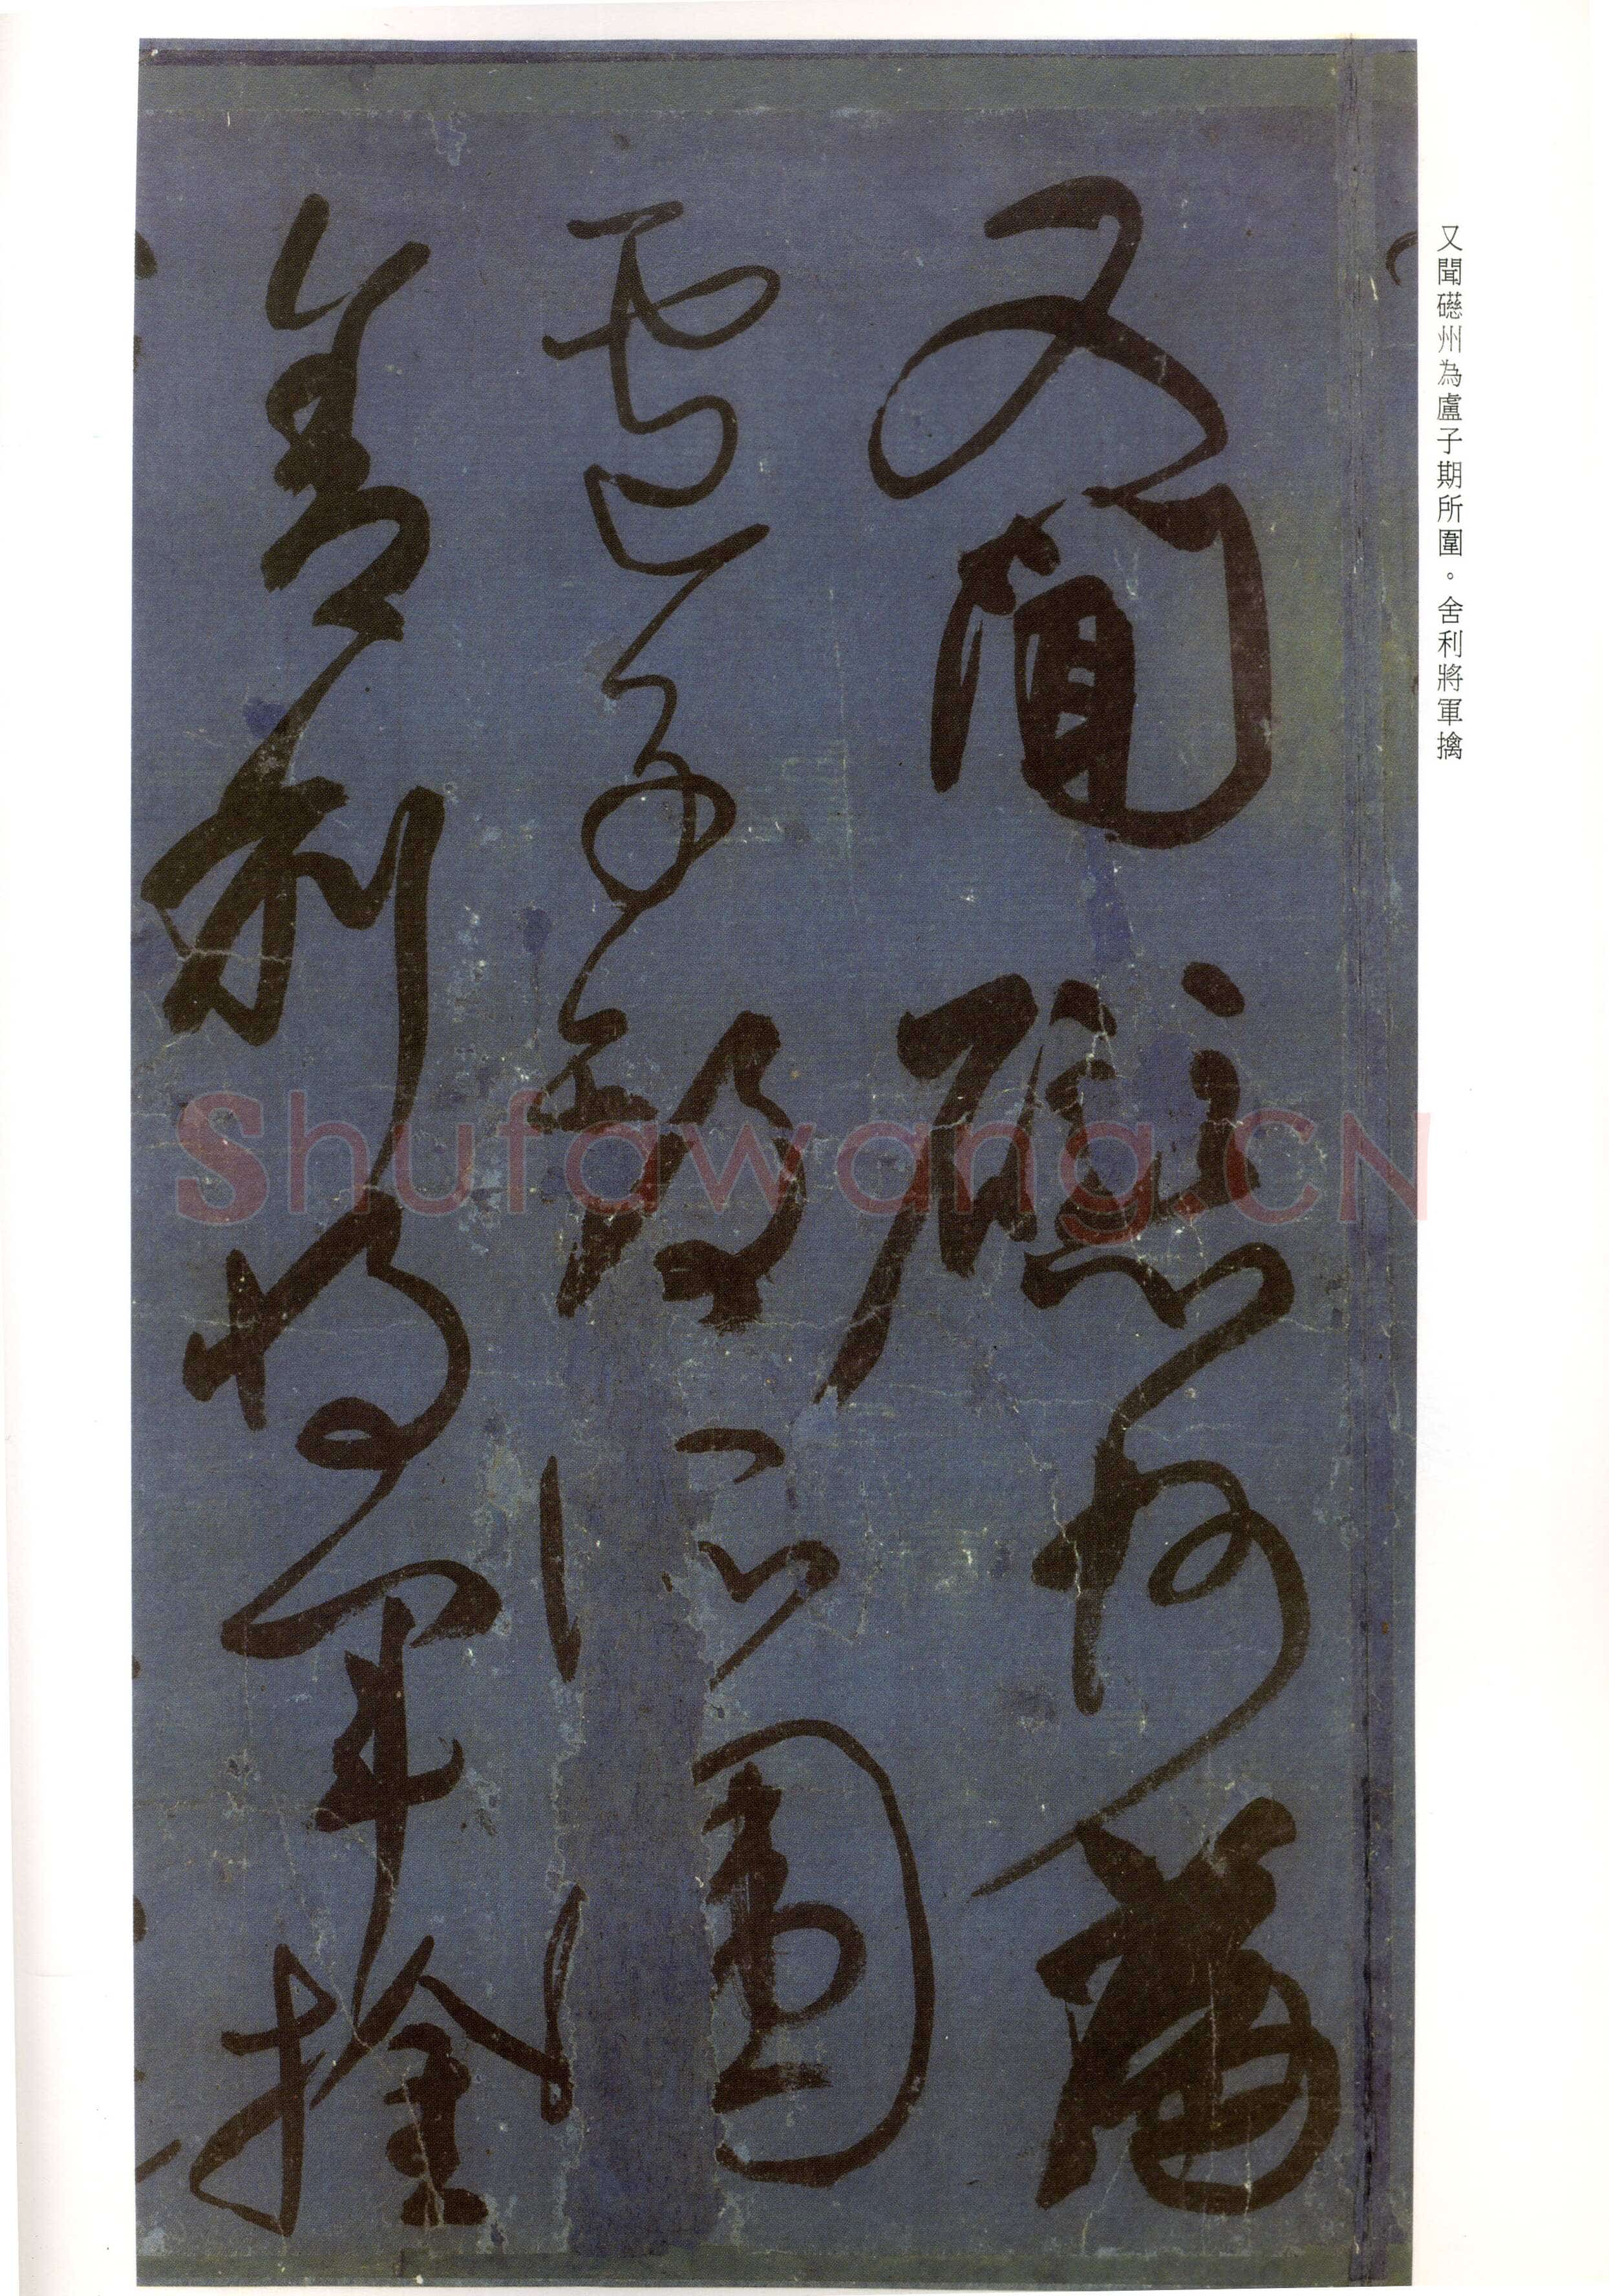 又聞礠州為盧子期所圍。舍利將軍擒
又聞礠州為
盧子期所圍
舍利將軍擒
Shufawang.CN